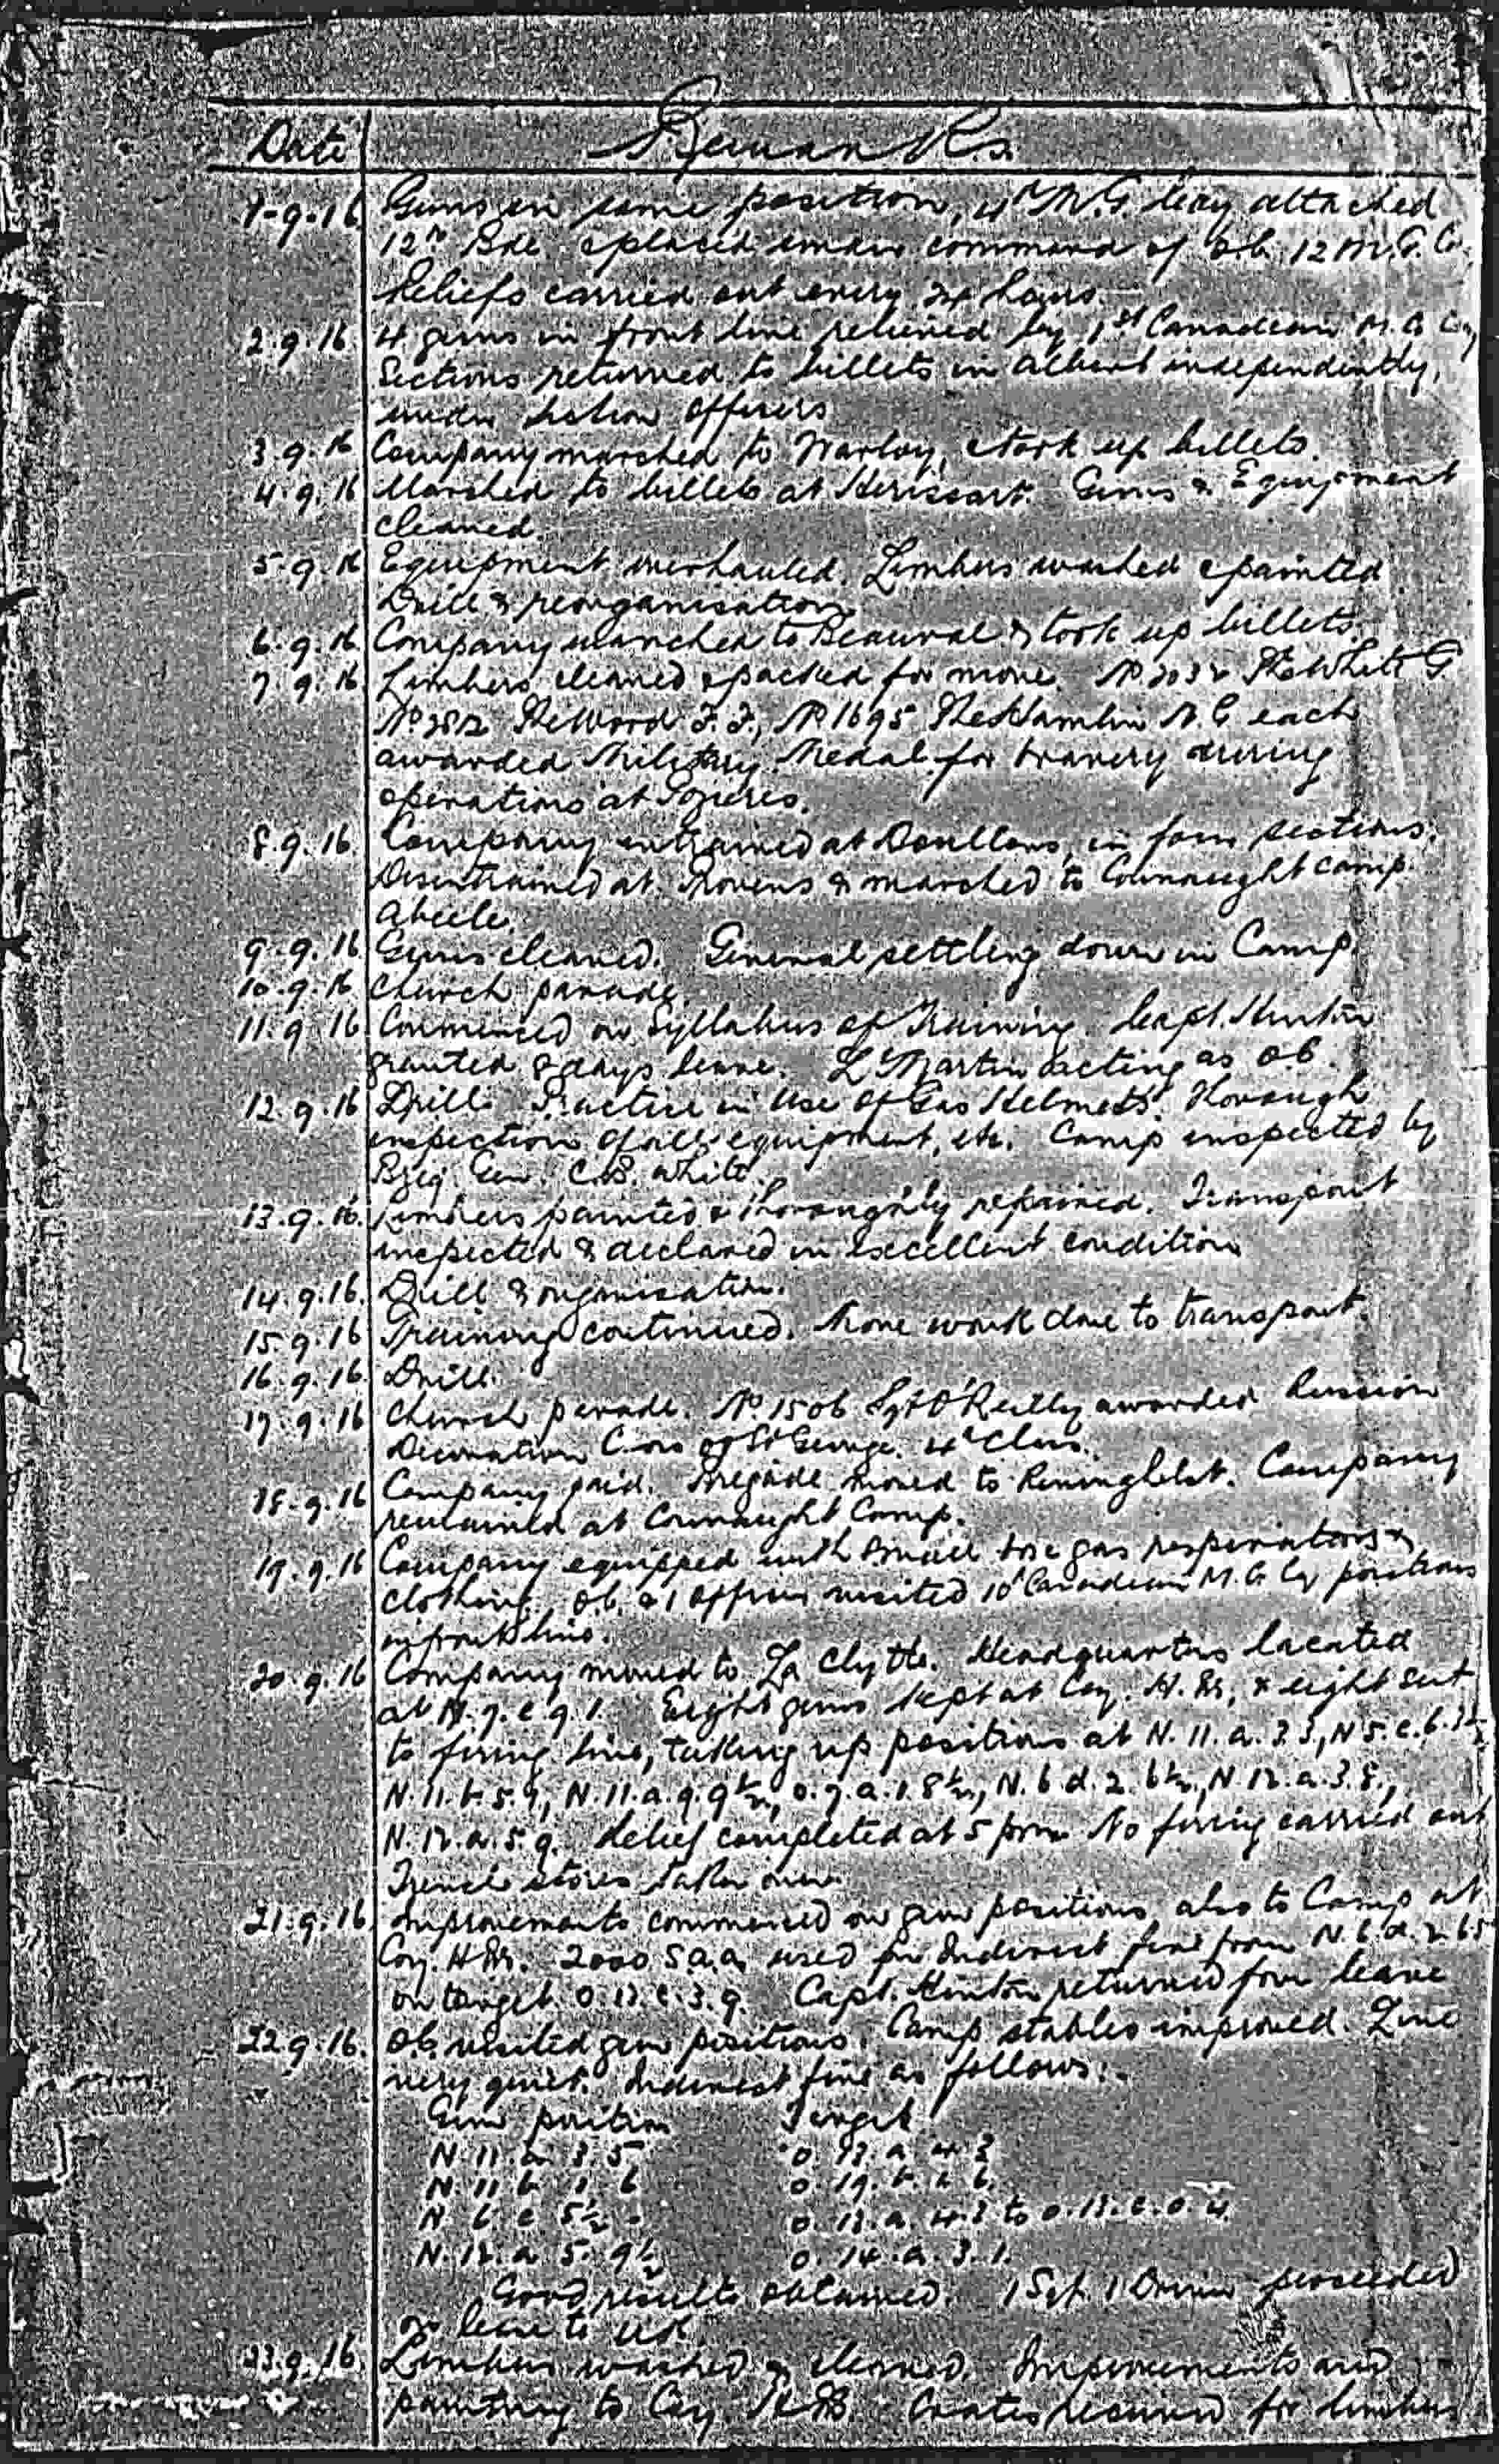 Date Remarks
1-9-16 Guns in same position, 4th M.G. Coy attached
12th Bde & placed under command of O.C. 12 M.G. Co.
Reliefs carried out every 24 hours.
2.9.16 4 guns in front line relieved by 1st Canadian M.G. Coy
Sections returned to billets in Albert independently,
under section officers
3.9.16 Company marched to Warloy, & took up billets.
4.9.16 Marched to billets at Herissart. Guns & Equipment
cleaned.
5.9.16 Equipment overhauled. Limbers washed & painted
Drill & reorganisation
6.9.16 Company marched to Beauval & took up billets.
7.9.16 Limbers cleaned & packed for move. No 2032 Pte White G.
Pte Wood F.F., No 1695 Pte Hamlin N.G each
awarded Military Medal for bravery during
operations at Pozieres.
8.9.16 Company entrained at Doullens, in four sections.
Disentrained at Provens & marched to Connaught camp
Abeele.
9.9.16 Guns cleaned. General settling down in Camp.
10.9.16 Church parade.
11.9.16 Commenced on Syllabus of Training. Capt. Hinton
granted 8 days leave. Lt Martin acting as O.C.
12.9.16 Drill. Practice in use of Gas Helmets. Thorough
inspection of all equipment, etc. Camp inspected by
Brig. Gen. C.B. White.
13.9.16. Limbers painted & thoroughly repaired. Transport
inspected & declared in excellent condition
14.9.16. Drill & organisation.
15.9.16 Training continued. More work done to transport.
16.9.16. Drill.
17.9.16 Church parade. No. 1506 Sgt O'Reilly awarded Russian
Decoration Cross of St George. 4th Class.
18.9.16 Company paid. Brigade moved to Reninghelst. Company
remained at Connaught Camp.
19.9.16 Company equipped with small box gas respirators &
clothing. O.C. & 1 Officer visited 10th Canadian M.G. Coy positions
in front line.
20.9.16 Company moved to La Clytte. Headquarters located
at N.7.c.9.1. Eight guns kept at Coy. H.Qrs, & eight sent
to firing line, taking up positions at N.11.a.3.3, N5.c.6.3½
N.11.b.5.9, N.11.a.9.9½, O.7.a.1.8½, N.6.d.2.6½, N.12.a.3.8.,
N.12.a.5.9. Relief completed at 5 pm. No firing carried out
Trench stores taken over.
21.9.16 Improvements commenced on gun positions also to Camp at
Coy. H.Qrs. 2000 S.a.a. used for Indirect fire from N.6.d.2.6.5
on target O.13.c.3.9. Capt. Hinton returned from leave
22.9.16. O.C. visited gun positions. Camp stables improved. Line
very quiet. Indirect fire as follows:-
Gun position Target
N.11.a.3.5 O.13.a.4.3
N.11.b.1.6 O.19.b.2.6.
N.6.c.5½.- O.13.a.4.3 to O.13.c.0.4
N.12.a.5.9½ O.14.a.3.1.
Good results obtained. 1 Sgt. 1 Driver proceeded
on leave to UK.
23.9.16 Limbers washed & cleaned. Improvements and
painting to Coy. H.Q. Coates received for limbers